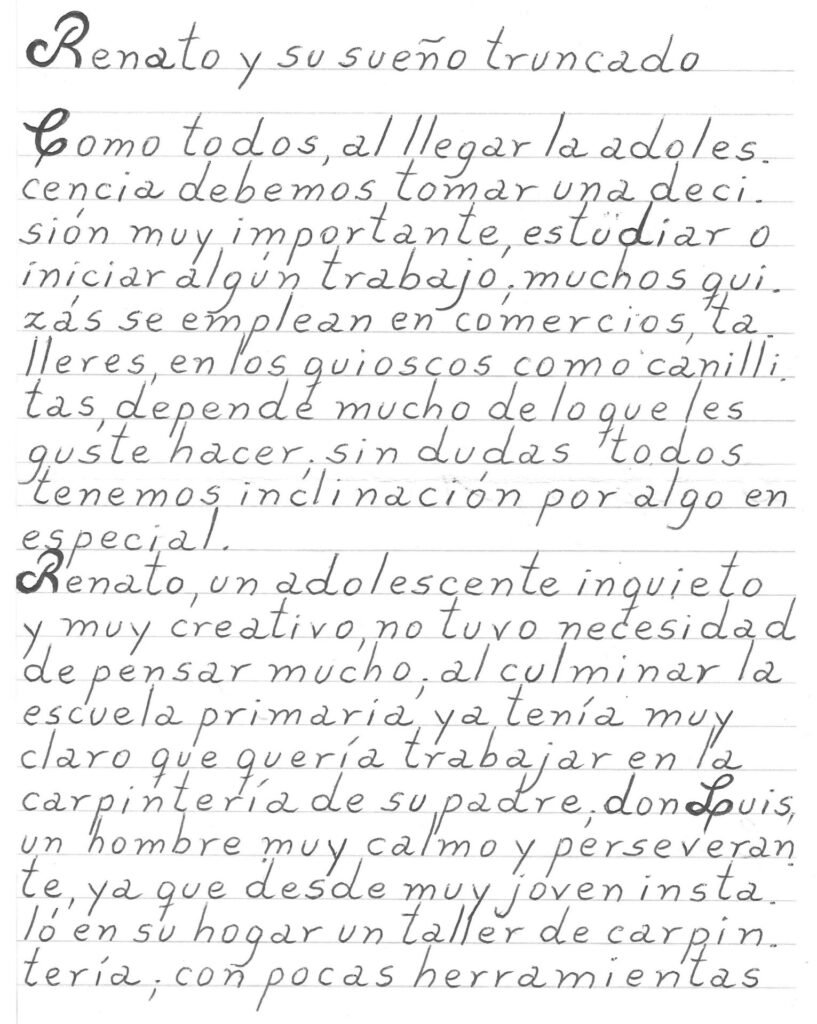 Renato y su sueño truncado
Como todos, al llegar la adoles.
cencia debemos tomar una deci.
sión muy importante, estudiar o
iniciar algún trabajo; muchos qui.
zás se emplean en comercios, ta.
lleres, en los quioscos como canilli.
tas, depende mucho de lo que les
guste hacer; sin dudas todos
tenemos inclinación por algo en
especial.
Renato, un adolescente inquieto
y muy creativo, no tuvo necesidad
de pensar mucho; al culminar la
escuela primaria, ya tenía muy
claro que quería trabajar en la
carpintería de su padre; don Luis,
un hombre muy calmo y perseveran
te, ya que desde muy joven insta.
ló en su hogar un taller de carpin.
tería; con pocas herramientas